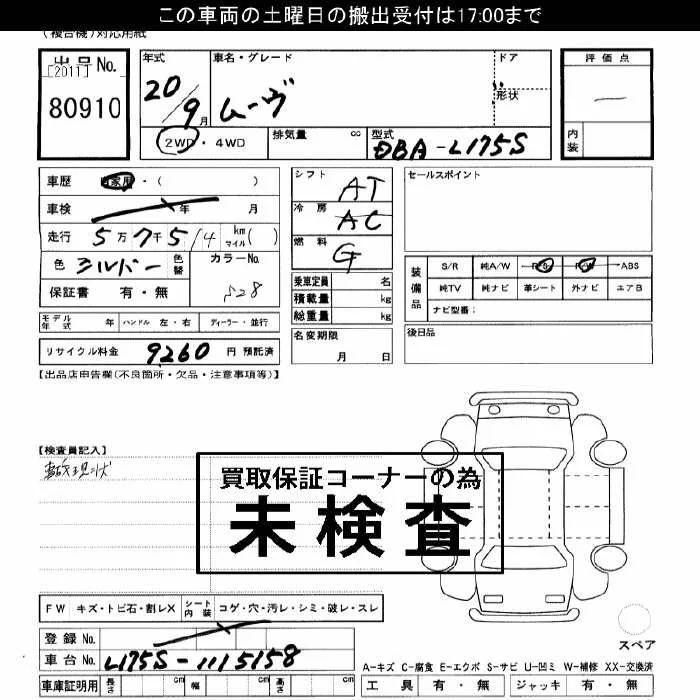 この車両の土曜日の搬出受付は17:00まで
(複合機)対応用紙
出品No.
[2011]
80910
年式 車名・グレード ドア
20/9月 ムーヴ 形状
2WD・4WD 排気量 cc 型式 DBA-L175S
評価点
—
内装
車歴 自家用・( )
車検 年 月
走行 5万7千5/4 km マイル( )
色 シルバー 色替 カラーNo.
S28
保証書 有・無
シフト AT
冷房 AC
燃料 G
乗車定員 名
積載量 kg
総重量 kg
名変期限
月 日
セールスポイント
装備品
S/R 純A/W P/S P/W ABS
純TV 純ナビ 革シート 外ナビ エアB
ナビ型番:
後日品
モデル年式 年 ハンドル 左・右 ディーラー・並行
リサイクル料金 9260 円 預託済
【出品店申告欄(不良箇所・欠品・注意事項等)】
【検査員記入】
現状
買取保証コーナーの為
未検査
FW キズ・トビ石・割レX シート内装 コゲ・穴・汚レ・シミ・破レ・スレ
登録 No.
車台 No. L175S-1115158
車庫証明用 長さ cm 幅 cm 高さ cm
スペア
A-キズ C-腐食 E-エクボ S-サビ U-凹ミ W-補修 XX-交換済
工具 有・無 ジャッキ 有・無